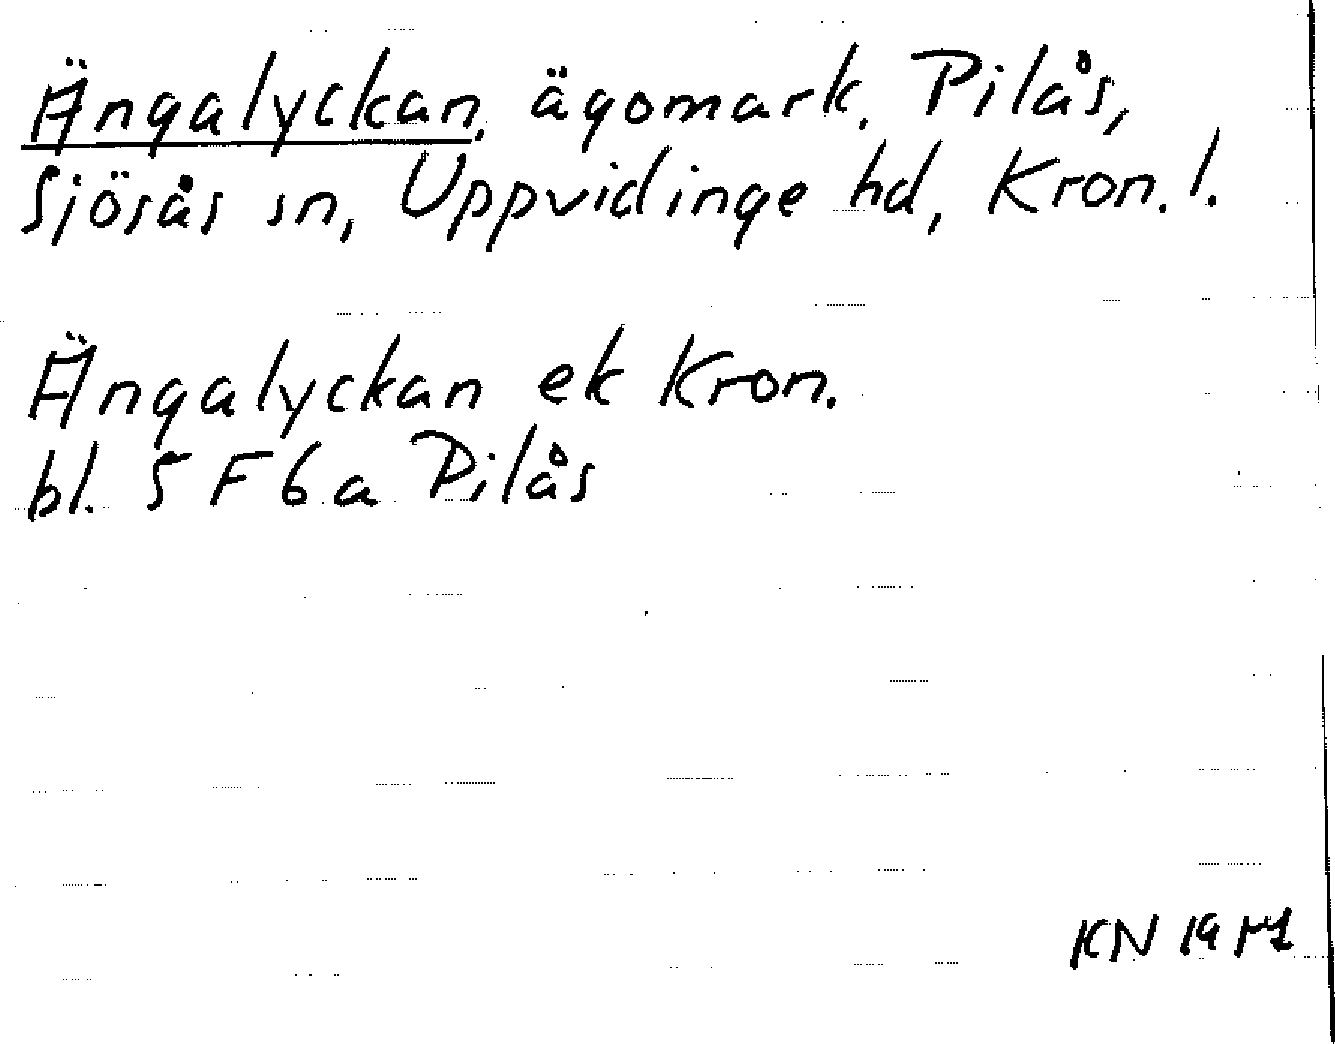 Ängalyckan, ägomark, Pilås,
Sjösås sn, Uppvidinge hd, Kron. l.
Ängalyckan ek Kron.
bl. 5 F 6 a Pilås
KN